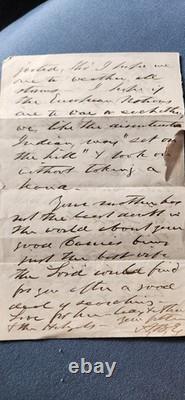 jected, tho' I hope we
are to weather all
storms — I hope if
the European Nations
are to war or
we, like the
Indian, may "sit on
the hill" & look on
without taking a
hand.
Your mother has
not the least doubt in
the world about your
good Bessie's being
just the best wife
the Lord could find
for you after a good
deal of searching.
Live for her
& the